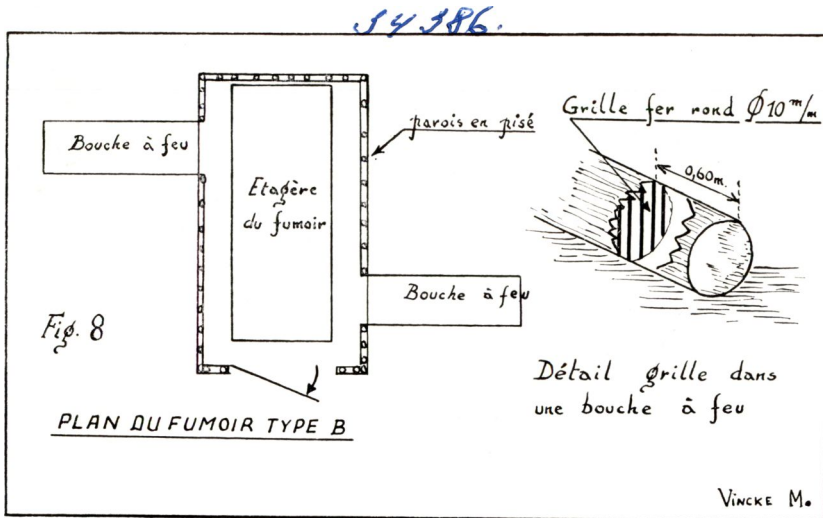 34386.
Bouche à feu
parois en pisé
Etagère
du fumoir
Bouche à feu
Fig. 8
PLAN DU FUMOIR TYPE B
Grille fer rond Ø 10 m/m
0,60m.
Détail grille dans
une bouche à feu
VINCKE M.